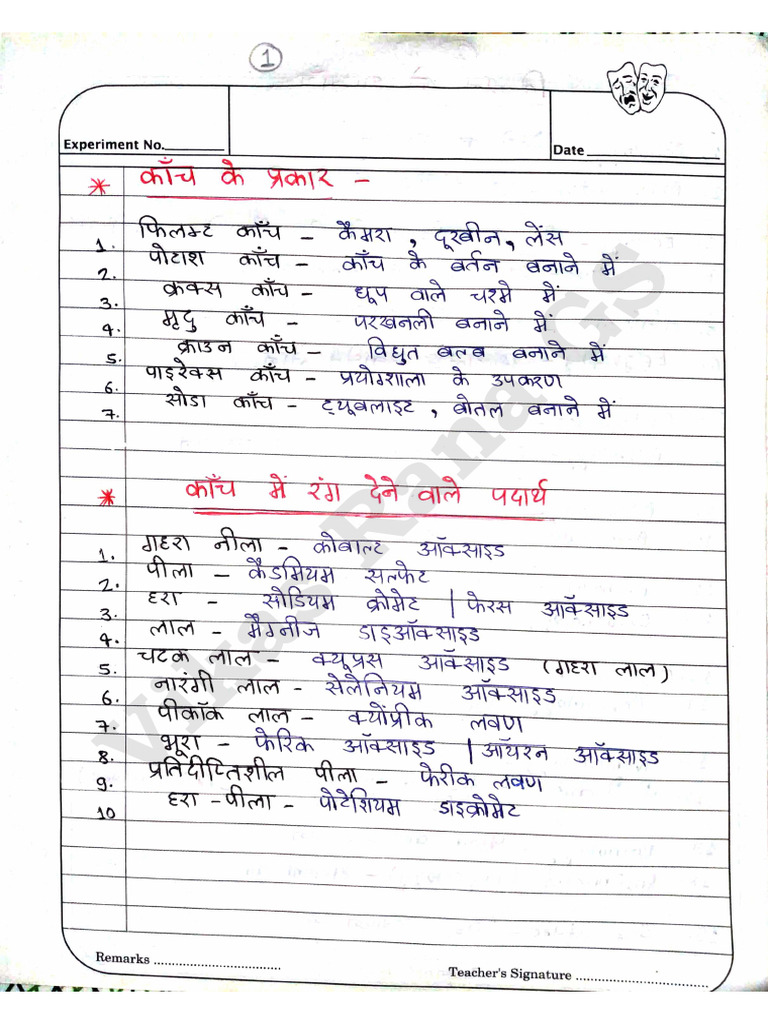 1
Experiment No.
Date
* काँच के प्रकार -
1. फिलम्ट काँच - कैमरा , दूरबीन, लेंस
2. पोटाश काँच - काँच के बर्तन बनाने में
3. क्रक्स काँच - धूप वाले चश्मे में
4. मृदु काँच - परखनली बनाने में
5. क्राउन काँच - विद्युत बल्ब बनाने में
6. पाइरेक्स काँच - प्रयोगशाला के उपकरण
7. सोडा काँच - ट्यूबलाइट , बोतल बनाने में
* काँच में रंग देने वाले पदार्थ
1. गहरा नीला - कोबाल्ट ऑक्साइड
2. पीला - कैडमियम सल्फेट
3. हरा - सोडियम क्रोमेट | फेरस ऑक्साइड
4. लाल - मैगनीज डाइऑक्साइड
5. चटक लाल - क्यूप्रस ऑक्साइड (गहरा लाल)
6. नारंगी लाल - सेलेनियम ऑक्साइड
7. पीकॉक लाल - क्योंप्रीक लवण
8. भूरा - फेरिक ऑक्साइड | ऑयरन ऑक्साइड
9. प्रतिदीप्तिशील पीला - फेरीक लवण
10 हरा -पीला - पोटेशियम डाइक्रोमेट
Vikas Rana GS
Remarks
Teacher's Signature